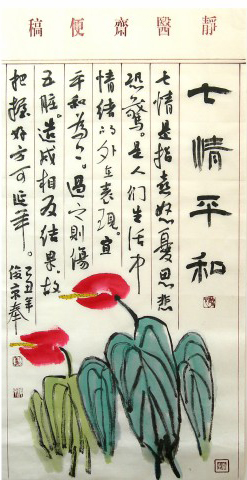 靜醫齋便稿
七情平和
七情是指喜怒憂思悲
恐驚。是人们生活中
情绪的外在表现。宜
平和為上。過之则傷
五脏。造成相反结果。故
把握好方可延年。
己丑年
俊京奉